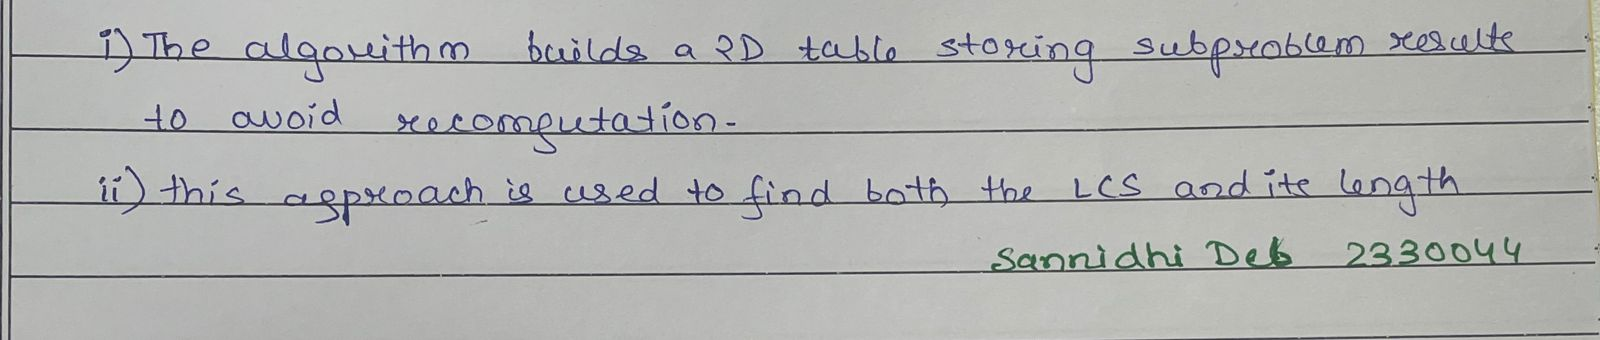 i) The algorithm builds a 2D table storing subproblem results
to avoid recomputation.
ii) this approach is used to find both the LCS and its length
Sannidhi Deb 2330044